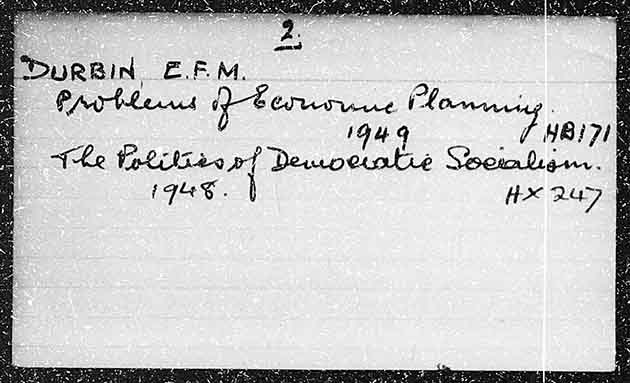 2.
DURBIN, E.F.M.
Problems of Economic Planning.
1949 HB171
The Politics of Democratic Socialism.
1948. HX 247